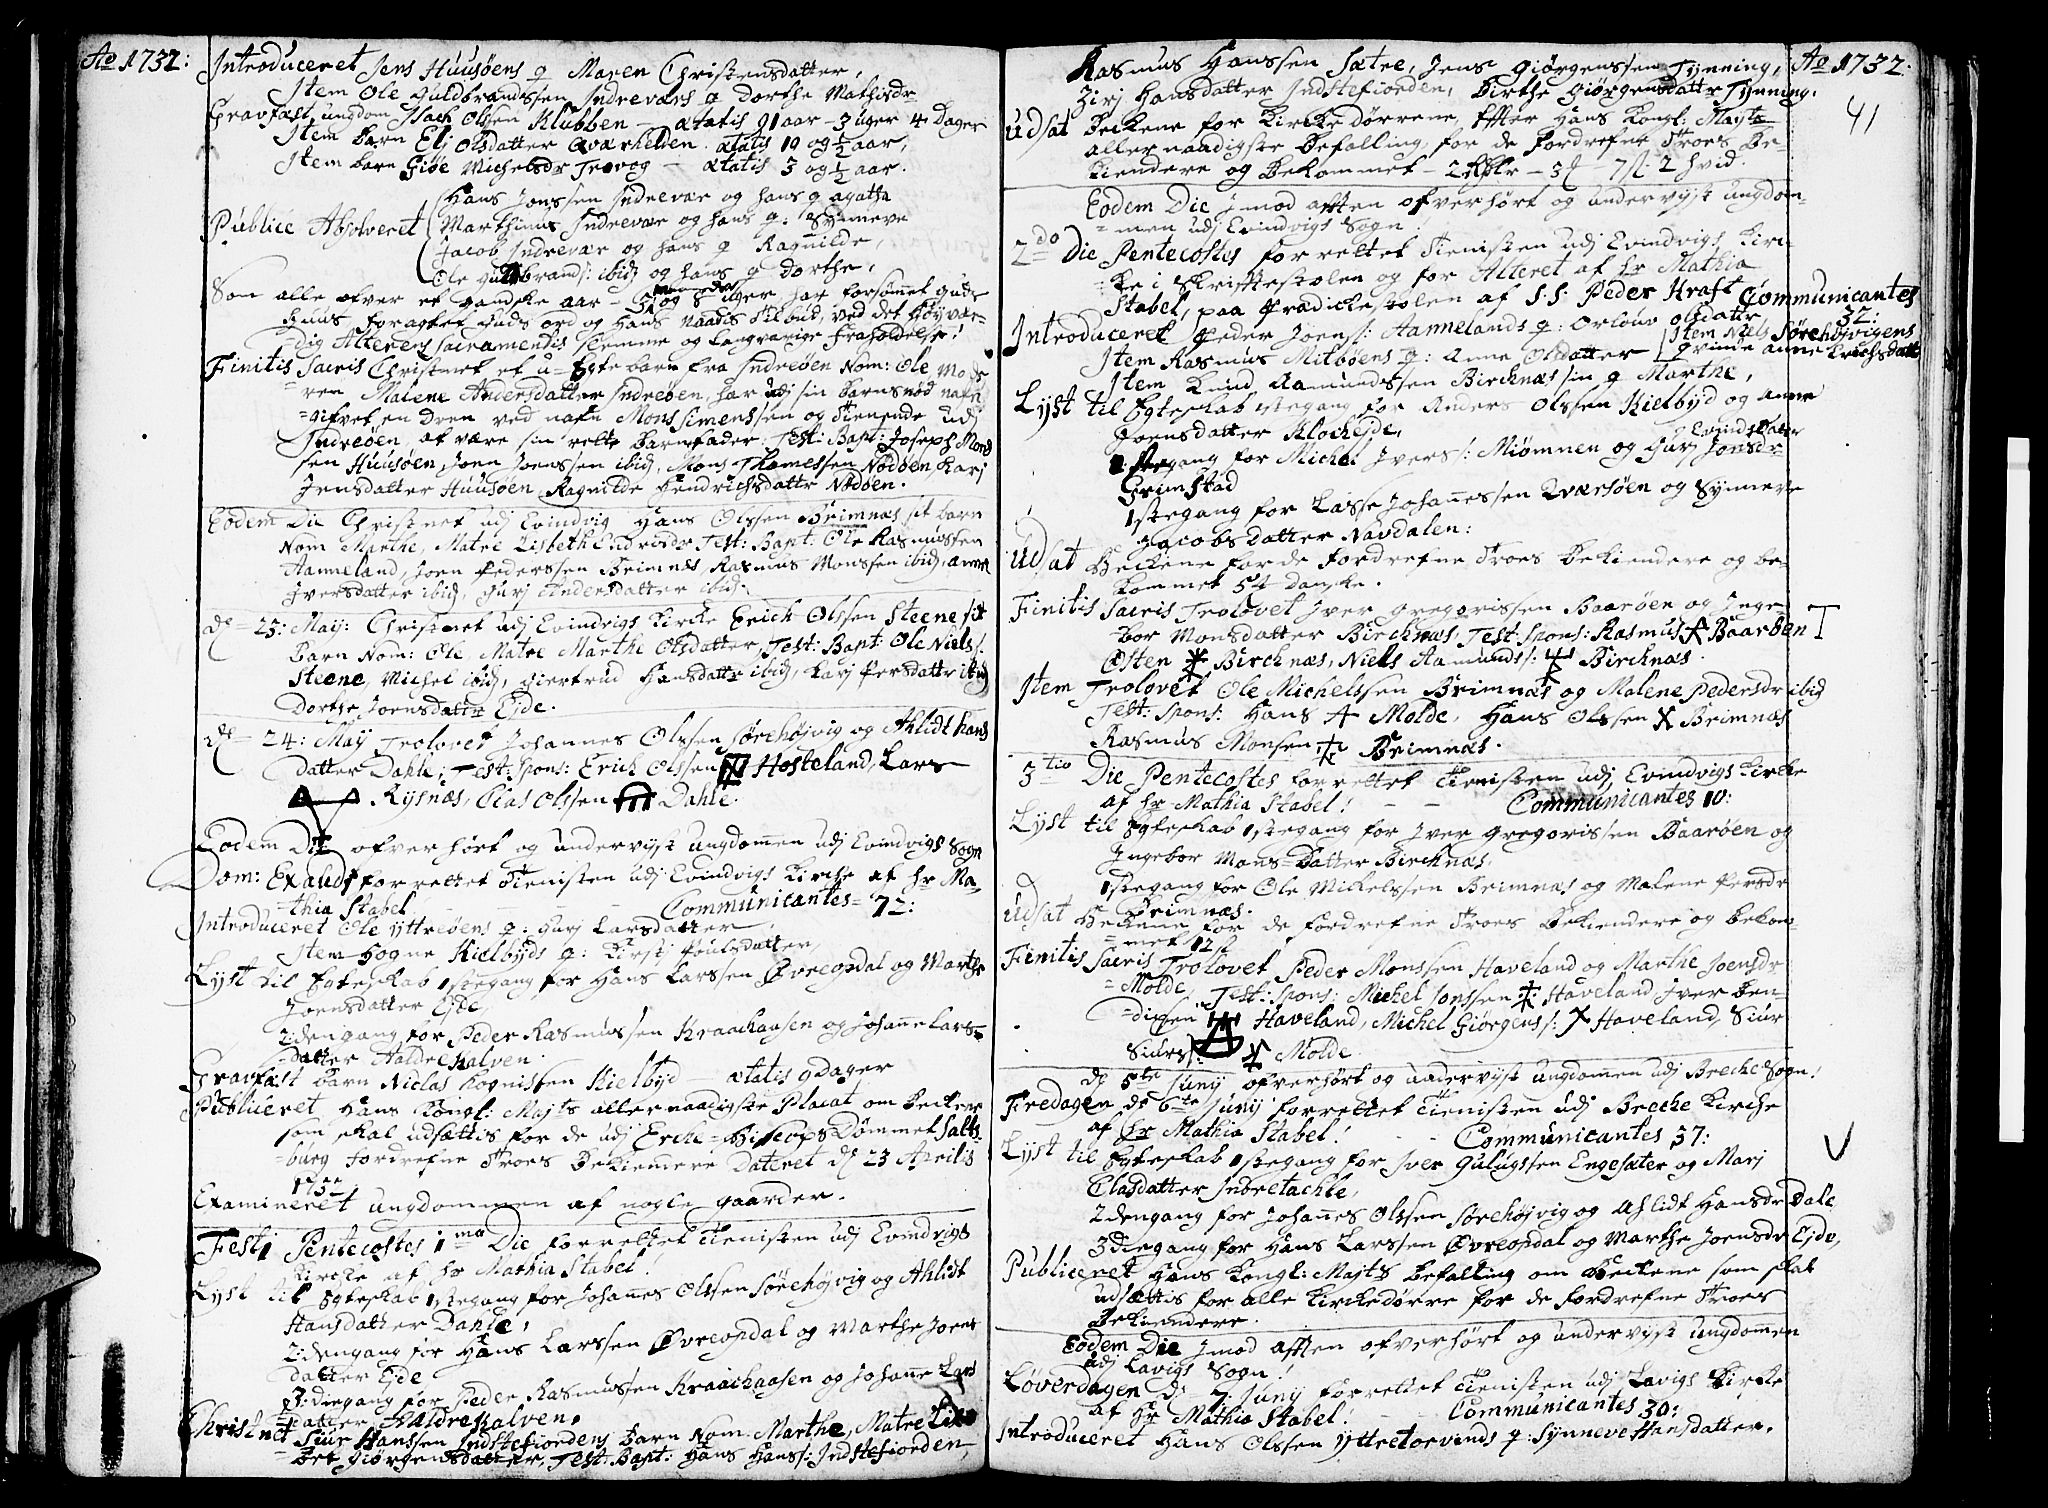 Ao 1732:
Introduceret Jens Huusøens q Maren Christensdatter,
Item Ole Guldbrandssen Indreværs q Dorthe Mathisdr
Gravfæst ungdom Isach Olssen Klubben — ætatis 91 aar — 3 uger 4 Dager
Item barn Elj Olsdatter Qværhelden ætatis 10 og ½ aar,
Item barn Giøe Michelsdr — ætatis 3 og ½ aar.
Hans Jonssen Indrevær og hans q agatha
Publice Absolveret Marthinus Indrevær og hans q: Synneve
Jacob Indrevær og hans q Ragnilde,
Ole Guldbrands: ibid og hans q Dorthe,
Som alle ofver et gandske aar — og 8 uger har forsømet guds
huus, foragtet guds ord og hans naadis tilbud, ved det Høyvær-
dig Alterens Sacramentis slemme og langvarige fraholdelse!
Finitis Sacris Christnet et u-Egte barn fra Indreøen Nom: Ole Mode
ren Malene Andersdatter Indreøen, har udj sin barnsnød
gifvet en Dreng ved nafn Mons Simenssen og tienende udj
Indreøen, at være sin rette barnfader. Test: Bapt: Joseph Mons
sen Huusøen, Jonn Joenssen ibid, Mons Thomessen Nødøen, Karj
Jensdatter Huusøen Ragnilde Hendrichsdattr Nødøen.
Eodem Die Christnet udj Evindvig Hans Olssen Brimnæs sit barn
Nom Marthe, Matre Lisbeth Endresdr Test: Bapt: Ole Rasmussen
Hanneland, Joen Pederssen Brimnæs, Rasmus Monssen ibid, anne
Jversdatter ibid, gurj Andersdatter ibid.
de 23: Maij: Christnet udj Evindvigs Kirke Erich Olssen Steene sit
Barn Nom: Ole Matre Marthe Olsdatter, Test: Bapt: Ole Niels:
Steene, Michel ibid, giertrud Hansdattr ibid, Karj Persdatter ibid
Dorthe Joensdattr Ejde.
de 24: Maij Trolovet Johannes Olssen Sørehøjvig og Ahlidt hans
datter Dahle; Test: Spons: Erich Olssen Hosteland, Lars
Rysnæs, Clas Olssen Dahle.
Eodem Die ofverhørt og undervijst ungdomen udj Evindvigs Sogn
Dom: Exaudi forrettet Tienisten udj Evindvigs Kirche af hr Ma-
thia Stabel — — — Communicantes 72:
Introduceret Ole Yttreøens q: gurj Larsdatter
Item Hogne Kielbyds q: Kirstj Poulsdatter,
Lyst til Egteskab 1stegang for Hans Larssen Øvreopdal og Marthe
Joensdatter Ejde,
2:dengang for Peder Rasmussen Kraachaasen og Johanne Lars-
datter Haldrehalven.
Gravfæst barn Niclas Hognissen Kielbyd ætatis 9 dager
Publiceret Hans Kongl: Majts allernaadigste Placat om becker
som skal udsættis for de udj Erche-Biscops Dømmet Salts-
burg fordrefne Troes Bekiendere Dateret d 23 Aprilis
1732
Examineret ungdommen af nogle gaarder.
Festj Pentecostes 1ma Die forrettet Tienisten udj Evindvigs
Kircke af hr Mathia Stabel!
Lyst til Egteskab 1stegang for Johañes Olssen Sørehøjvig og Ahlidt
Hansdatter Dahle,
2:dengang for Hans Larssen Øvreopdal og Marthe Joens
datter Ejde
3:diegang for Peder Rasmussen Kraachaasen og Johanne Lars
datter Haldrehalven.
Christnet Siur Hanssen Indstefiordens barn Nom: Marthe, Matre Lisa
bet Giørgensdatter, Test: Bapt: Hans Hans: Indstefiorden,
Ao 1732.
41
Rasmus Hanssen Sætre, Jens Giørgenssen Tynning,
Zirj Hansdatter Indstefiorden, Birthe Giørgensdattr Tynning.
Udsat Beckene for Kircke dørrene, Efter Hans Kongl: Mayts
allernaadigste Befalling, for de fordrefne Troes Be-
kiendere og Bekommet — 2 — 3 — 7 2 hvid.
Eodem Die Jmod afften ofverhørt og undervijst ungdom-
men udj Evindvigs Sogn.
2do Die Pentecostes forrettet Tienisten udj Evindvigs Kir-
ke i Skriftestolen og for Alteret af hr Mathia
Stabel, paa Prædickestolen af S: S: Peder Kraft Communicantes
32:
Introduceret Peder Joens: Hannelands q: Orlouv Olsdatter
Item Niels Sørehøjvigens
qvinde anne Erichsdattr
Item Rasmus Mitbøens q: Anne Olsdatter
Item Knud Aamundssen Birchnæs sin q Marthe,
Lyst til Egteskab 1stegang for Anders Olssen Kielbyd og anne
Joensdatter Klochejde,
Evindsdatter
1stegang for Michel Jvers: Miømnen og Gurj Jonsdr
Grimstad
1stegang for Lasse Johañessen Qværsøen og Synneve
Jacobsdatter Navdalen:
Udsat Beckene for de fordrefne Troes Bekiendere og be-
kommet 54 danske.
Finitis Sacris Trolovet Jver gregorissen Baarøen og Jnge-
bor Monsdatter Birchnæs, Test: Spons: Rasmus Baarøen T
Østen Birchnæs, Niels Aamunds: Birchnæs.
Item Trolovet Ole Michelssen Brimnæs og Malene Pedersdr ibid
Test: Spons: Hans Molde, Hans Olssen Brimnæs
Rasmus Monsen Brimnæs.
3tio Die Pentecostes forrettet Tienisten udj Evindvigs Kirke
af hr Mathia Stabel! — — Communicantes 10:
Lyst til Egteskab 1stegang for Jver gregorissen Baarøen og
Jngebor Mons-Datter Birchnæs,
1stegang for Ole Mickelssen Brimnæs og Malene Persdr
Brimnæs.
Udsat Beckene for de fordrefne Troes Bekiendere og Bekom-
met 12
Finitis Sacris Trolovet Peder Monssen Haveland og Marthe Joensdr
Molde, Test: Spons: Michel Jonssen Haveland Jver Ben-
dixen Haveland, Michel Giørgens: Haveland, Siur
Siurs: Molde.
d 5te Junij ofverhørt og undervijst ungdomen udj Breche Sogn!
Fredagen d 6te Junij forrettet Tienisten udj Breche Kirche
af Hr Mathia Stabel! — Communicantes 37:
Lyst til Egteskab 1stegang for Jver Gulugssen Engesæter og Marj
Clasdatter Indretachle,
V
2dengang for Johañes Olssen Sørehøjvig og Ahlidt Hansdr Dale
3diegang for Hans Larssen Øvreopdal og Marthe Joensdr Ejde,
Publiceret Hans Kongl: Majts Befalling om Beckene som skal
udsættis for alle Kirckedørre for de fordrefne Troes
Bekiendere.
Eodem Die Jmod afften ofverhørt og undervijst ungdommen
udj Lavigs Sogn!
Løverdagen d 7: Junij forrettet Tienisten udj Lavigs Kircke
af Hr Mathia Stabel! — Communicantes 30:
Introduceret Hans Olssen Yttretorvinds q: Synneve Hansdatter.